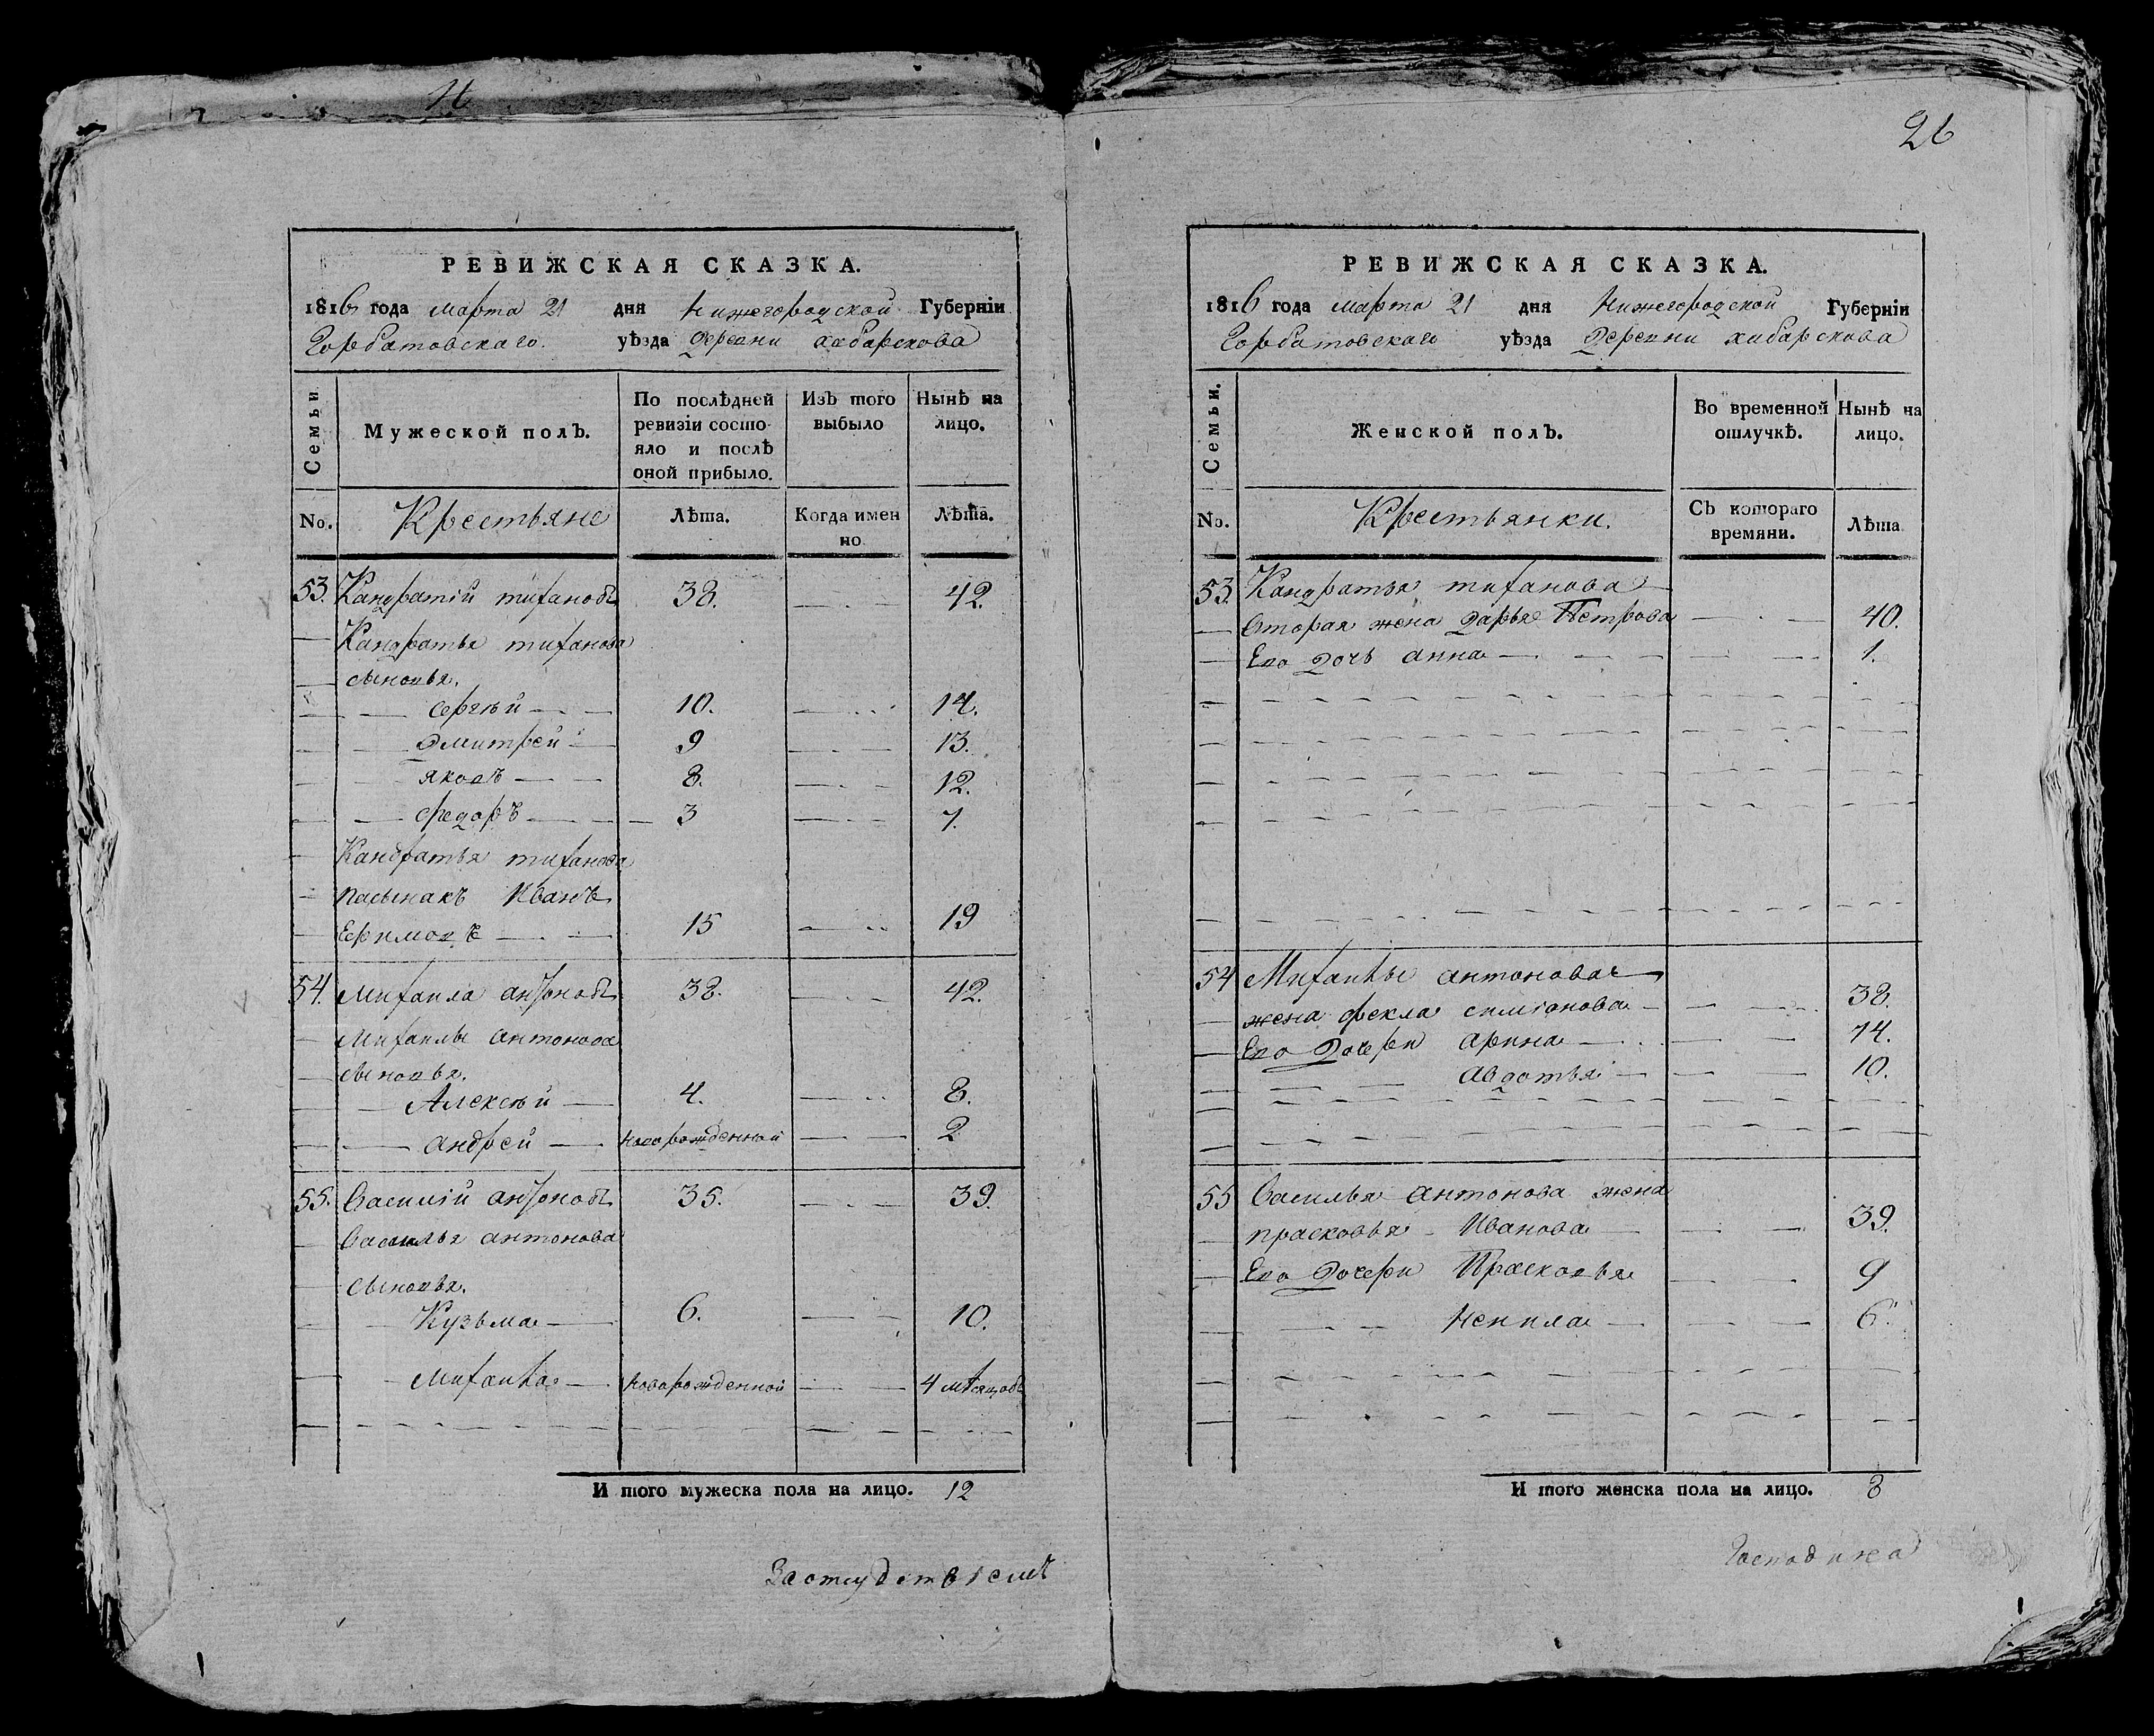 26
РЕВИЖСКАЯ СКАЗКА.
1816 года марта 21 дня Нижегородской Губернїи
Горбатовскаго уѣзда Деревни хабарскова
Семьи
Мужеской полЪ.
По послѣдней ревизїи состояло и послѣ оной прибыло.
ИзЪ того выбыло
НынѢ на лицо.
No.
Крестьяне
Лѣта.
Когда именно
Лѣта.
53. Кандратїй тихановъ 38. 42.
Кандратья тиханова
сыновья.
сергѣй 10. 14.
Дмитрей 9 13.
яковъ 8. 12.
Федоръ 3 7.
Кандратья тиханова
пасынакъ Иванъ
Ефимовъ 15 19
54. михаила антоновъ 38. 42.
михаилы антонова
сыновья.
Алексѣй 4. 8.
андрей новорожденной 2
55. Василїй антоновъ 35. 39.
Василья антонова
сыновья.
Кузьма 6. 10.
михайла новорожденной 4 мѣсяцовъ
И того мужеска пола на лицо. 12
РЕВИЖСКАЯ СКАЗКА.
1816 года марта 21 дня Нижегородской Губернїи
Горбатовскаго уѣзда Деревни хабарскова
Семьи.
Женской полЪ.
Во временной отлучкѣ.
НынѢ на лицо.
No.
Крестьянки.
СЪ котораго времяни.
Лѣта
53. Кандратья тиханова
вторая жена Дарья Петрова 40.
Его Дочь анна 1.
54 Михайлы антонова
жена фекла симїонова 38.
Его Дочери арина 14.
авдотья 10.
55 Василья антонова жена
прасковья Иванова 39.
Его Дочери Прасковья 9
Ненила 6.
И того женска пола на лицо. 8
Господина